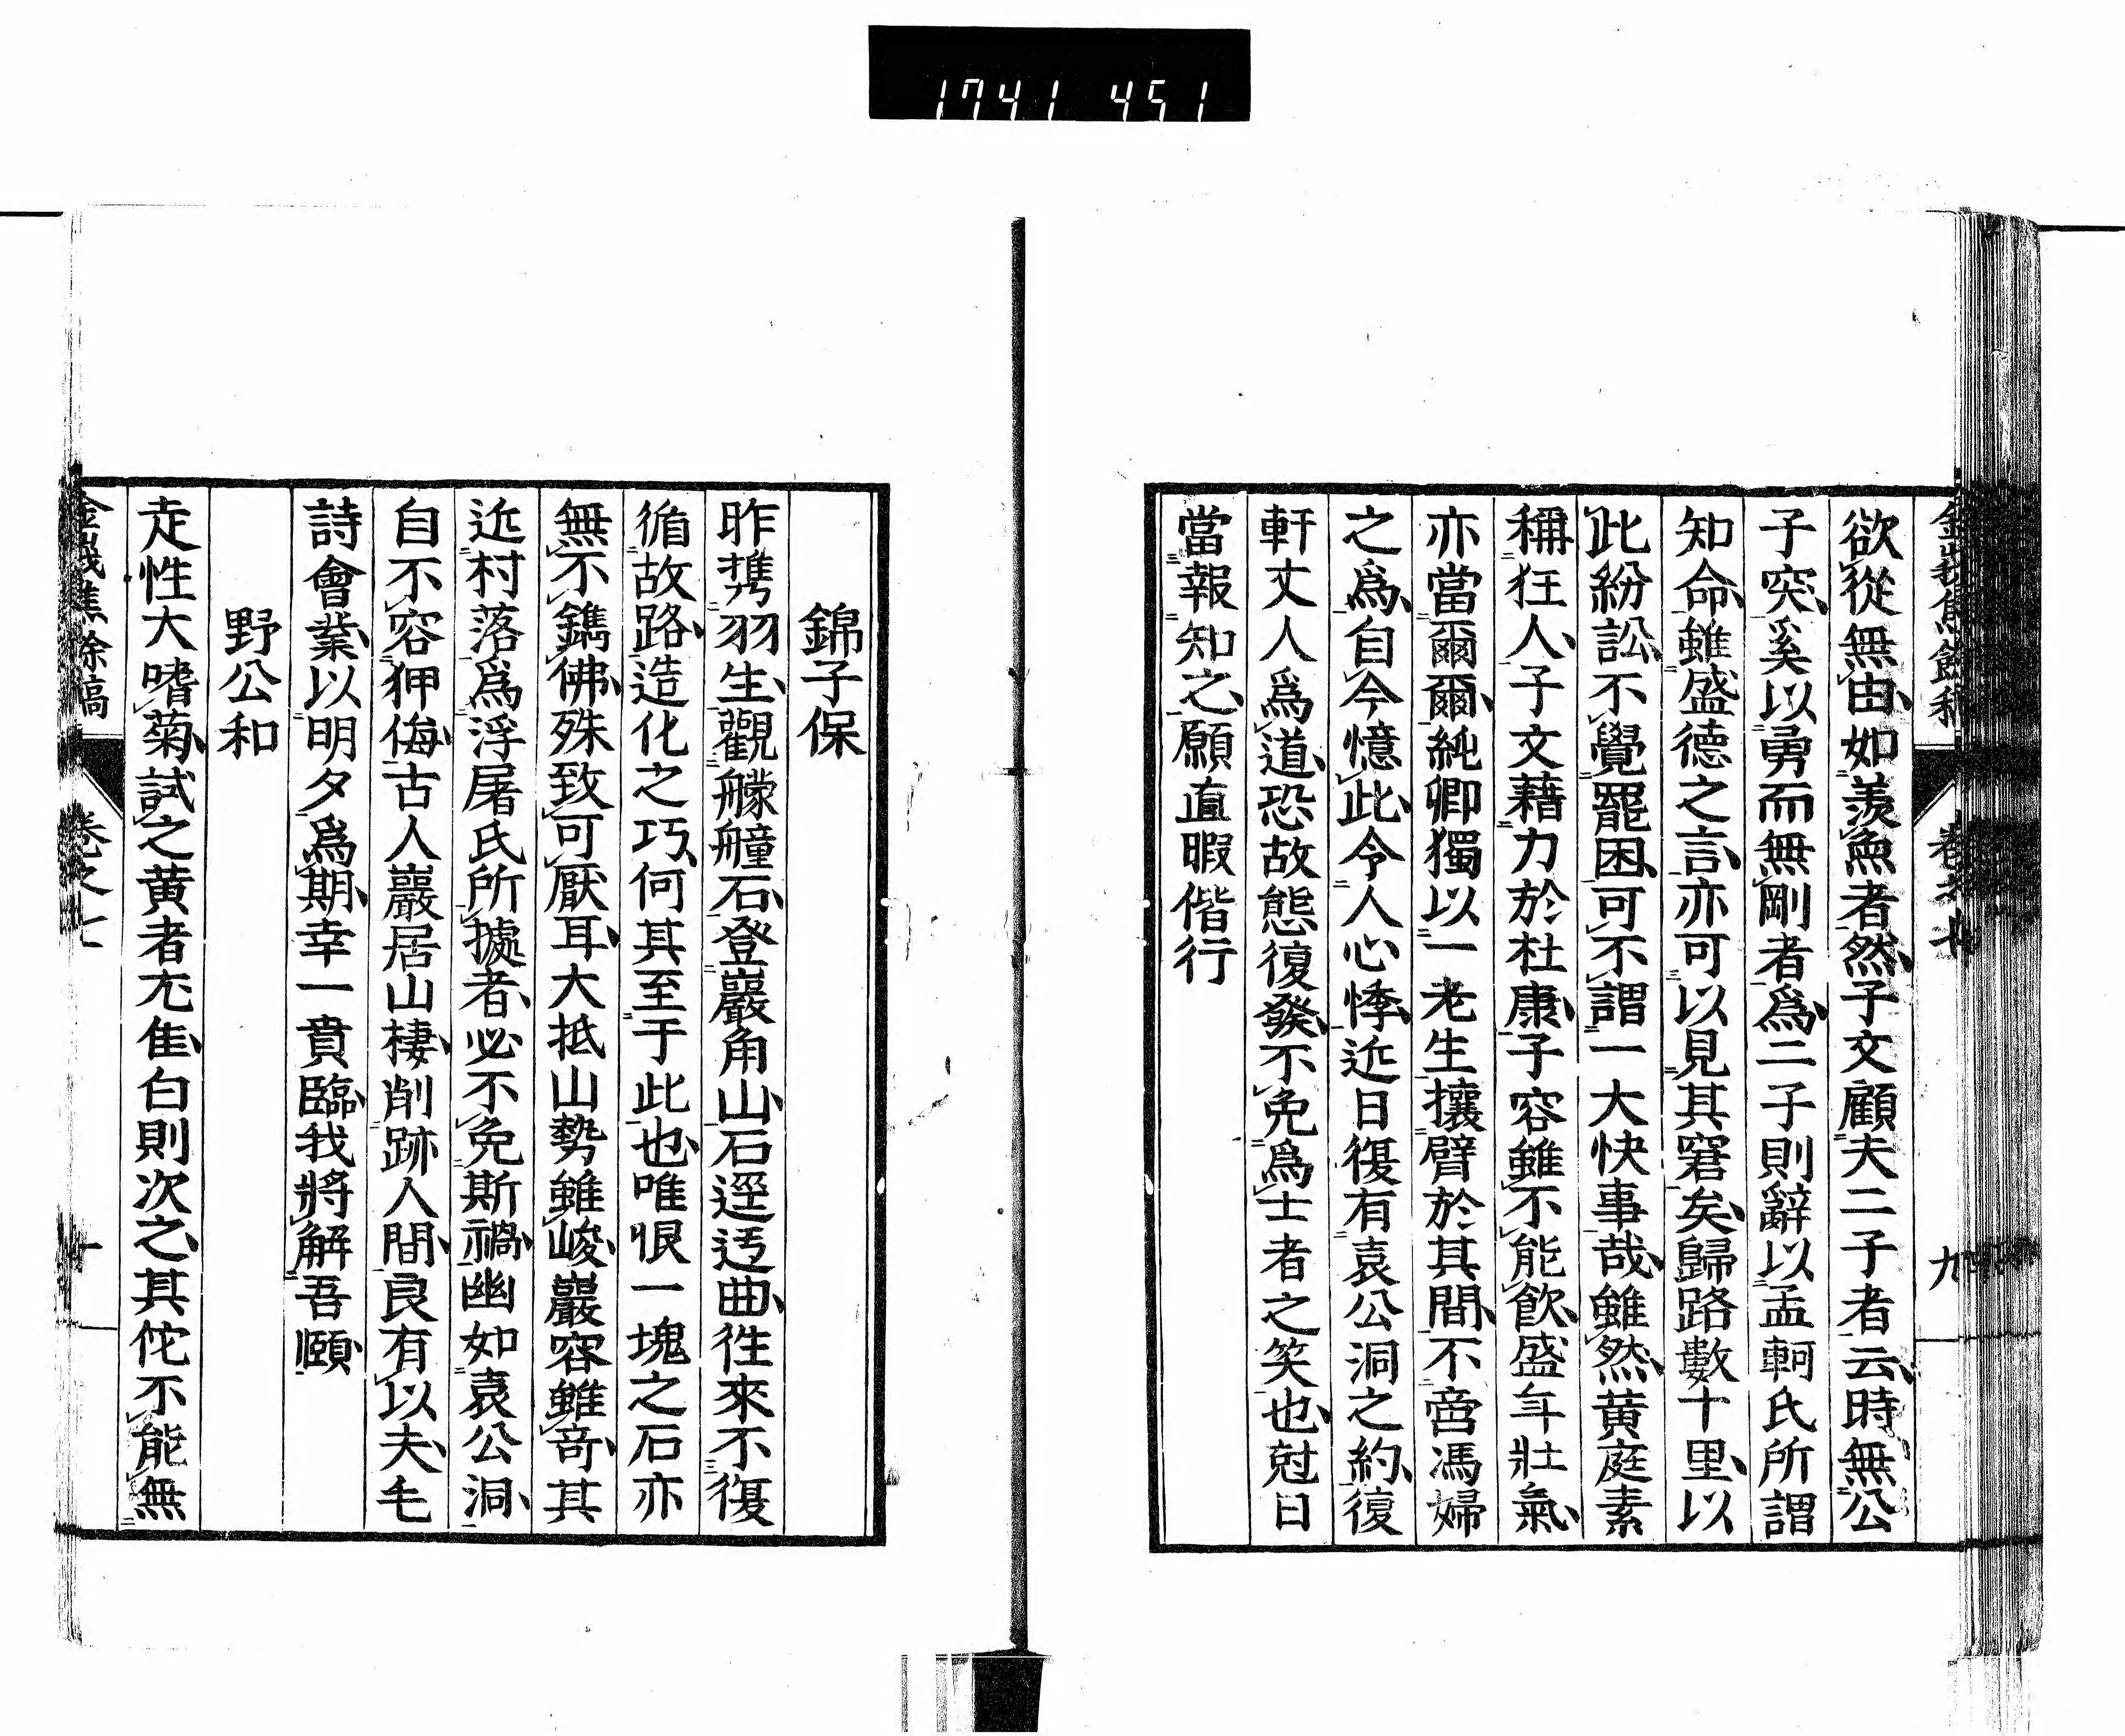 1741 451
卷之七
九
欲從無由如羨魚者然子文顧夫二子者云時無公
子突奚以勇而無剛者爲二子則辭以孟軻氏所謂
知命雖盛德之言亦可以見其窘矣歸路數十里以
此紛訟不覺罷困可不謂一大快事哉雖然黄庭素
稱狂人子文藉力於杜康子容雖不能飮盛年壯氣
亦當爾爾純卿獨以一老生攘臂於其間不啻馮婦
之爲自今憶此令人心悸近日復有袁公洞之約復
軒丈人爲道恐故態復發不免爲士者之笑也尅日
當報知之願直暇偕行
錦子保
昨携羽生觀艨艟石登巖角山石逕迃曲徃來不復
循故路造化之巧何其至于此也唯恨一塊之石亦
無不鐫佛殊致可厭耳大抵山勢雖峻巖容雖竒其
近村落爲浮屠氏所據者必不免斯禍幽如袁公洞
自不容狎侮古人巖居山棲削跡人間良有以夫毛
詩會業以明夕爲期幸一賁臨我將解吾頤
野公和
走性大嗜菊試之黄者尤佳白則次之其佗不能無
金峨焦餘稿
卷之七
十